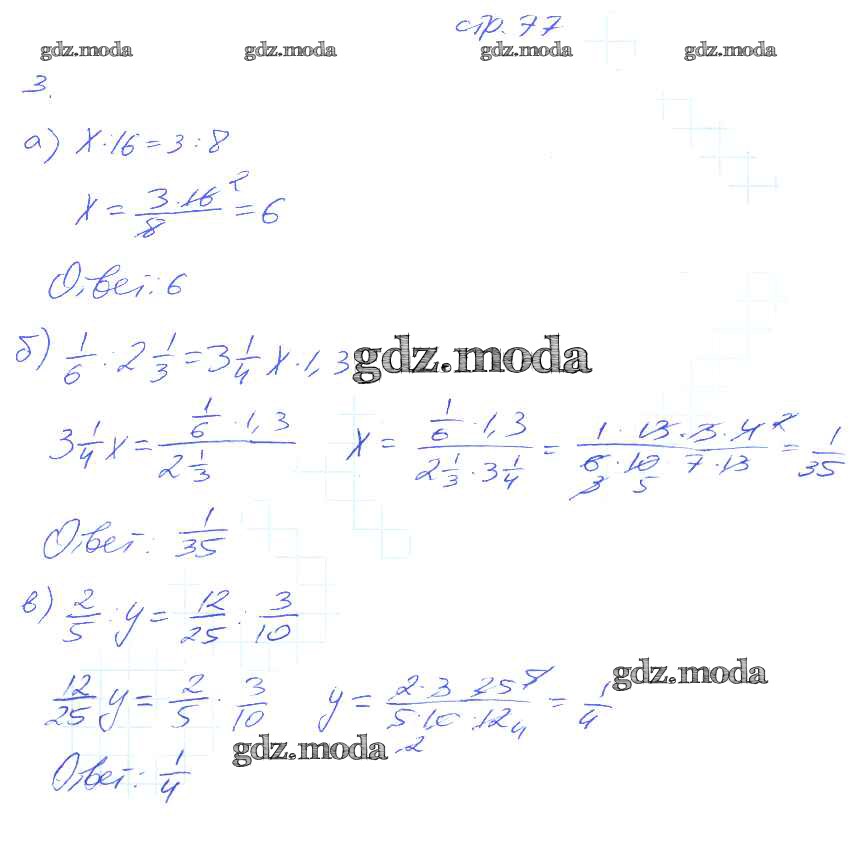 стр. 77
gdz.moda gdz.moda gdz.moda gdz.moda
3.
а) x:16=3:8
x = 3·16/8 2 = 6
Ответ: 6
б) 1/6 : 2 1/3 = 3 1/4 x : 1,3
gdz.moda
3 1/4 x = (1/6 · 1,3)/(2 1/3) x = (1/6 · 1,3)/(2 1/3 · 3 1/4) = (1 · 13 · 3 · 4 2)/(6 · 10 · 7 · 13) = 1/35
3 5
Ответ: 1/35
в) 2/5 : y = 12/25 : 3/10
gdz.moda
12/25 y = 2/5 · 3/10 y = (2·3·25 5)/(5·10·12 4) = 1/4
2
gdz.moda
Ответ: 1/4